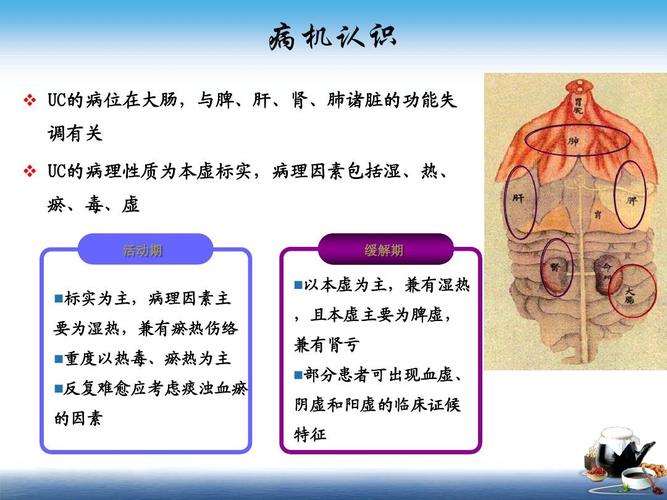 病机认识
UC的病位在大肠，与脾、肝、肾、肺诸脏的功能失
调有关
UC的病理性质为本虚标实，病理因素包括湿、热、
瘀、毒、虚
活动期
标实为主，病理因素主
要为湿热，兼有瘀热伤络
重度以热毒、瘀热为主
反复难愈应考虑痰浊血瘀
的因素
缓解期
以本虚为主，兼有湿热
，且本虚主要为脾虚，
兼有肾亏
部分患者可出现血虚、
阴虚和阳虚的临床证候
特征
胃脘
肺
肝
胃
脾
肾
命門
大腸